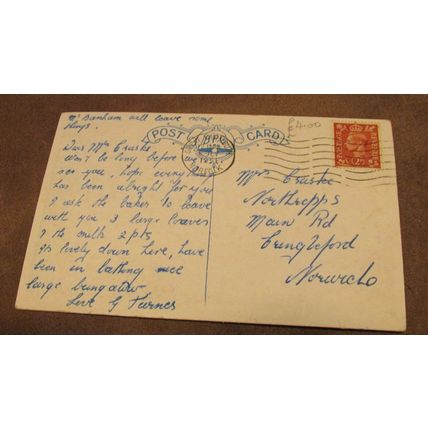 Mr Banham will leave some
things.
POST CARD
£4.00
NORFOLK
POSTAGE
REVENUE
Dear Mrs Cruske
Won't be long before we
see you, hope everything
has been alright for you
I ask the baker to leave
with you 3 large loaves
& the milk 2 pts
Its lovely down here, have
been in bathing nice
large bungalow
Love G Turner
Mrs Cruske
Northrepps
Main Rd
Cringleford
Norwich